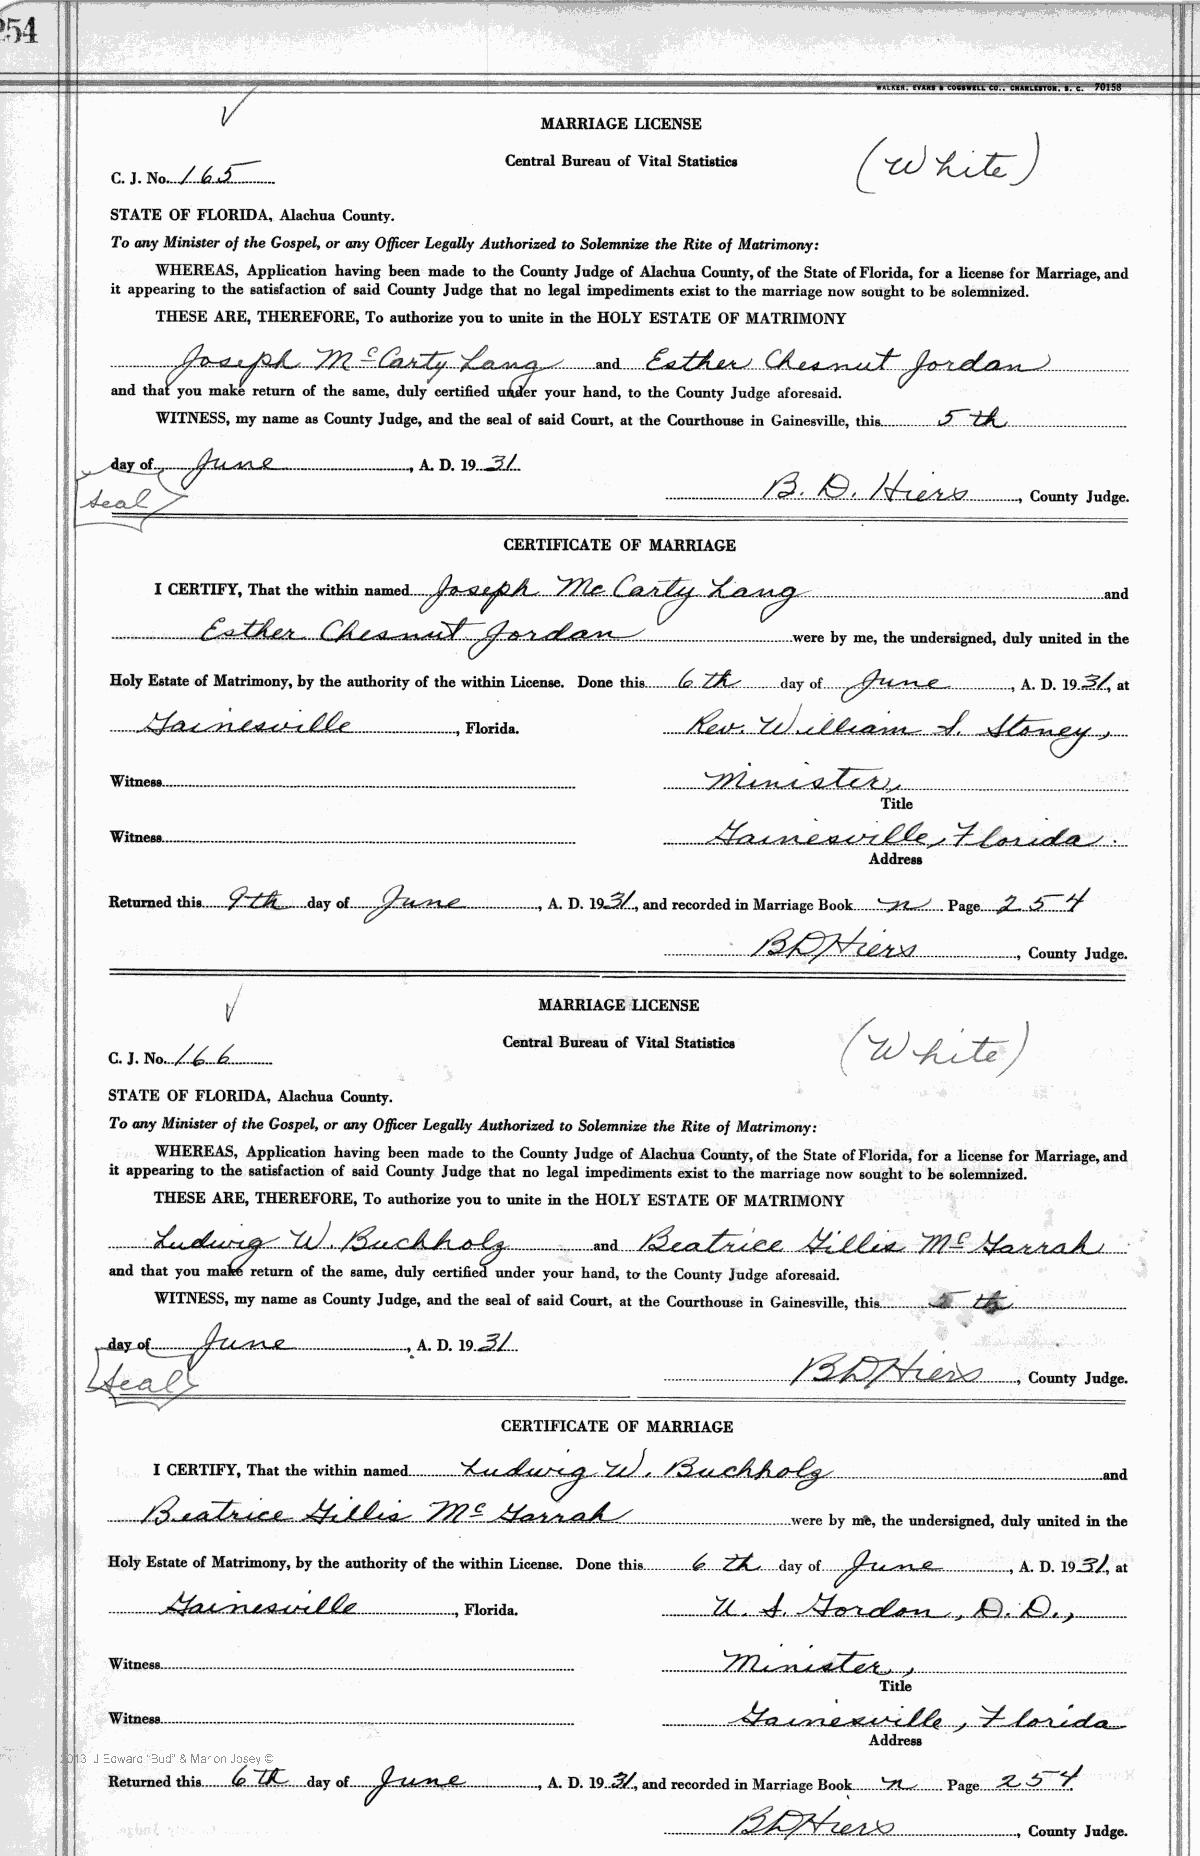 254
WALKER, EVANS & COGSWELL CO., CHARLESTON, S. C. 70158
MARRIAGE LICENSE
Central Bureau of Vital Statistics
(White)
C. J. No. 165
STATE OF FLORIDA, Alachua County.
To any Minister of the Gospel, or any Officer Legally Authorized to Solemnize the Rite of Matrimony:
WHEREAS, Application having been made to the County Judge of Alachua County, of the State of Florida, for a license for Marriage, and
it appearing to the satisfaction of said County Judge that no legal impediments exist to the marriage now sought to be solemnized.
THESE ARE, THEREFORE, To authorize you to unite in the HOLY ESTATE OF MATRIMONY
Joseph McCarty Lang and Esther Chesnut Jordan
and that you make return of the same, duly certified under your hand, to the County Judge aforesaid.
WITNESS, my name as County Judge, and the seal of said Court, at the Courthouse in Gainesville, this 5th
day of June, A. D. 1931
Seal
B. D. Hiers, County Judge.
CERTIFICATE OF MARRIAGE
I CERTIFY, That the within named Joseph McCarty Lang and
Esther Chesnut Jordan were by me, the undersigned, duly united in the
Holy Estate of Matrimony, by the authority of the within License. Done this 6th day of June, A. D. 1931, at
Gainesville, Florida. Rev. William S. Stoney,
Witness Minister,
Title
Witness Gainesville, Florida.
Address
Returned this 9th day of June, A. D. 1931, and recorded in Marriage Book n Page 254
BDHiers, County Judge.
MARRIAGE LICENSE
Central Bureau of Vital Statistics
(White)
C. J. No. 166
STATE OF FLORIDA, Alachua County.
To any Minister of the Gospel, or any Officer Legally Authorized to Solemnize the Rite of Matrimony:
WHEREAS, Application having been made to the County Judge of Alachua County, of the State of Florida, for a license for Marriage, and
it appearing to the satisfaction of said County Judge that no legal impediments exist to the marriage now sought to be solemnized.
THESE ARE, THEREFORE, To authorize you to unite in the HOLY ESTATE OF MATRIMONY
Ludwig W. Buchholz and Beatrice Gillis McGarrah
and that you make return of the same, duly certified under your hand, to the County Judge aforesaid.
WITNESS, my name as County Judge, and the seal of said Court, at the Courthouse in Gainesville, this 5th
day of June, A. D. 1931
Seal
BDHiers, County Judge.
CERTIFICATE OF MARRIAGE
I CERTIFY, That the within named Ludwig W. Buchholz and
Beatrice Gillis McGarrah were by me, the undersigned, duly united in the
Holy Estate of Matrimony, by the authority of the within License. Done this 6th day of June, A. D. 1931, at
Gainesville, Florida. U. S. Gordon, D. D.,
Witness Minister,
Title
Witness Gainesville, Florida
Address
2013 J Edward "Bud" & Marion Josey ©
Returned this 6th day of June, A. D. 1931, and recorded in Marriage Book n Page 254
BDHiers, County Judge.